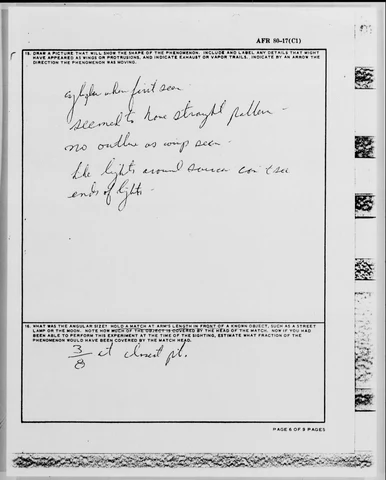 AFR 80-17(C1)
15. DRAW A PICTURE THAT WILL SHOW THE SHAPE OF THE PHENOMENON. INCLUDE AND LABEL ANY DETAILS THAT MIGHT
HAVE APPEARED AS WINGS OR PROTRUSIONS, AND INDICATE EXHAUST OR VAPOR TRAILS. INDICATE BY AN ARROW THE
DIRECTION THE PHENOMENON WAS MOVING.
when first seen
seemed to have straight pattern -
no outline as seen -
like lights around saucer can't see
ends of lights -
16. WHAT WAS THE ANGULAR SIZE? HOLD A MATCH AT ARM'S LENGTH IN FRONT OF A KNOWN OBJECT, SUCH AS A STREET
LAMP OR THE MOON. NOTE HOW MUCH OF THE OBJECT IS COVERED BY THE HEAD OF THE MATCH. NOW IF YOU HAD
BEEN ABLE TO PERFORM THIS EXPERIMENT AT THE TIME OF THE SIGHTING, ESTIMATE WHAT FRACTION OF THE
PHENOMENON WOULD HAVE BEEN COVERED BY THE MATCH HEAD.
3/8 at closest pt.
PAGE 6 OF 9 PAGES